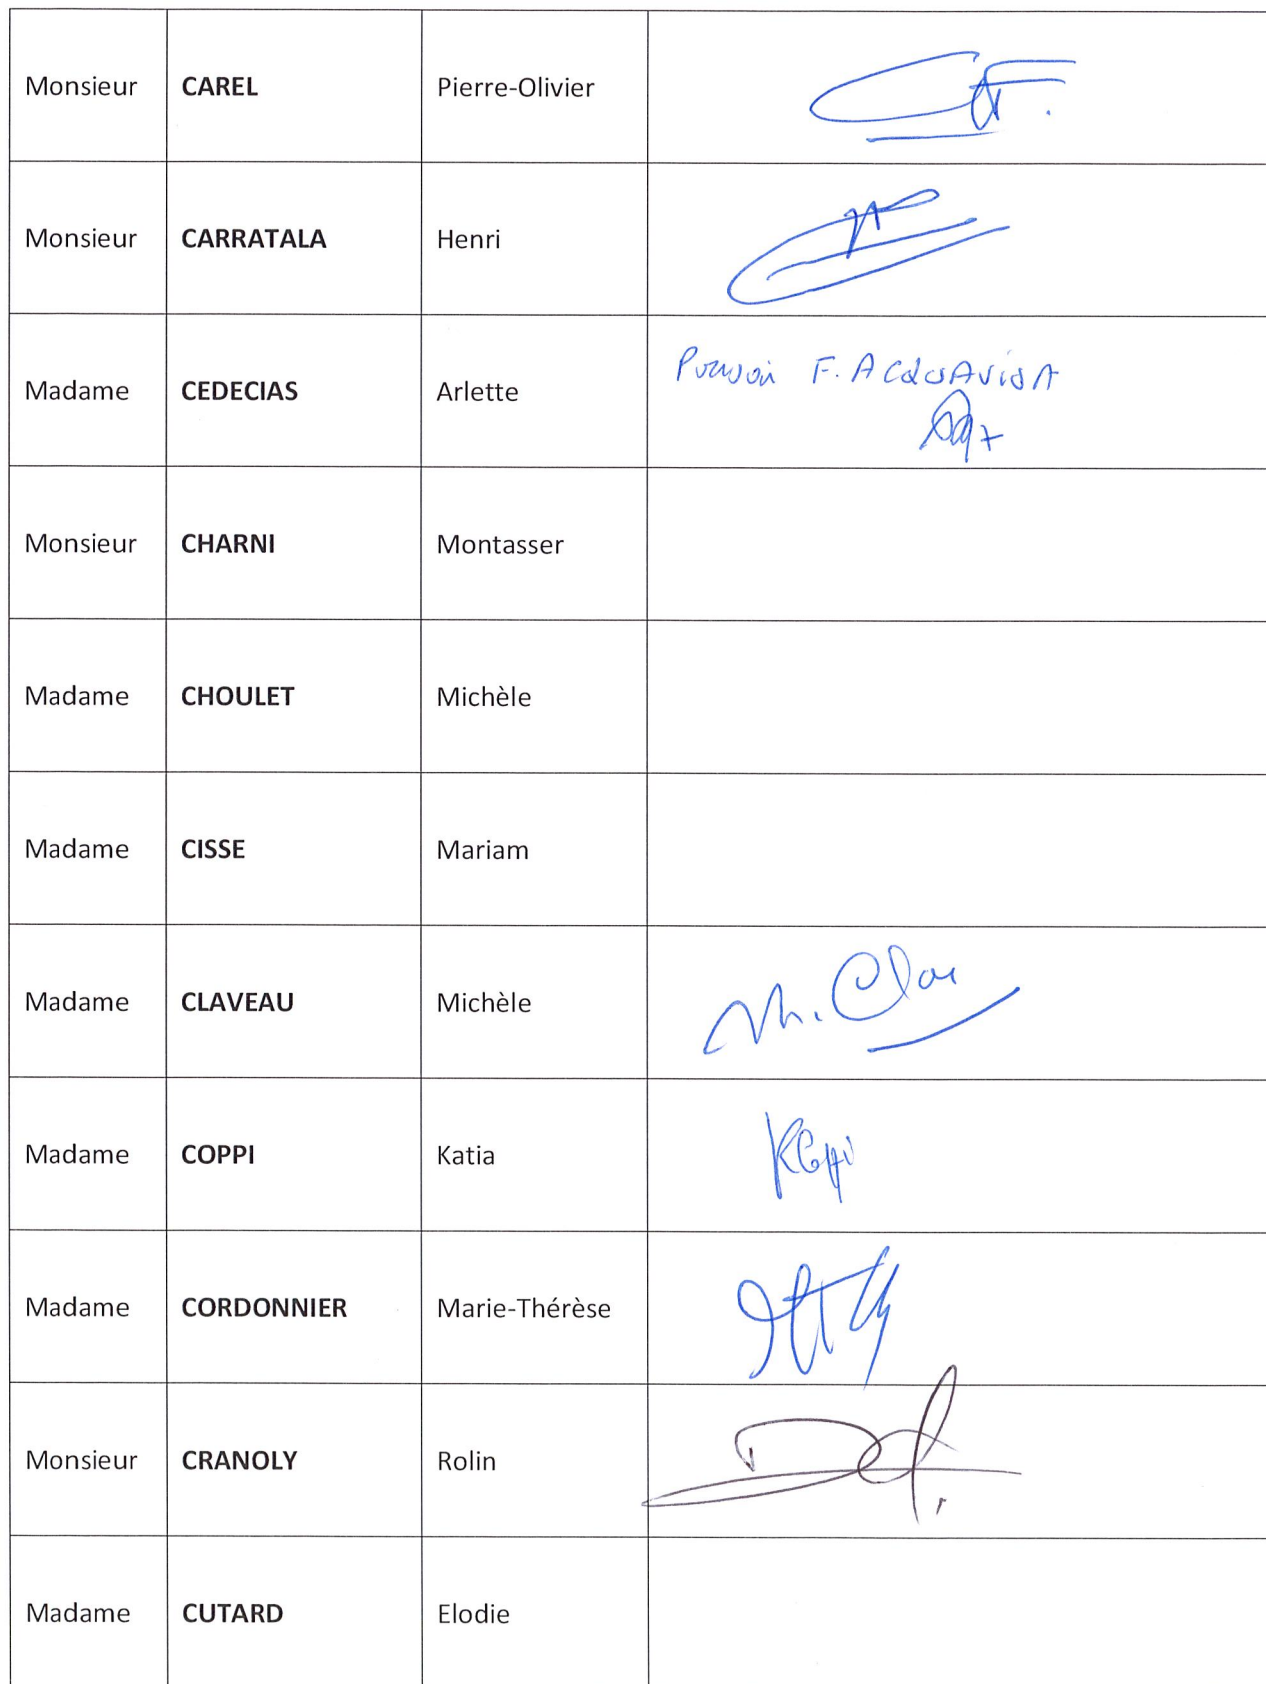 Monsieur CAREL Pierre-Olivier
Monsieur CARRATALA Henri
Madame CEDECIAS Arlette Pouvoir F. ACQUAVIVA
Monsieur CHARNI Montasser
Madame CHOULET Michèle
Madame CISSE Mariam
Madame CLAVEAU Michèle M. Clav
Madame COPPI Katia KCoppi
Madame CORDONNIER Marie-Thérèse
Monsieur CRANOLY Rolin
Madame CUTARD Elodie